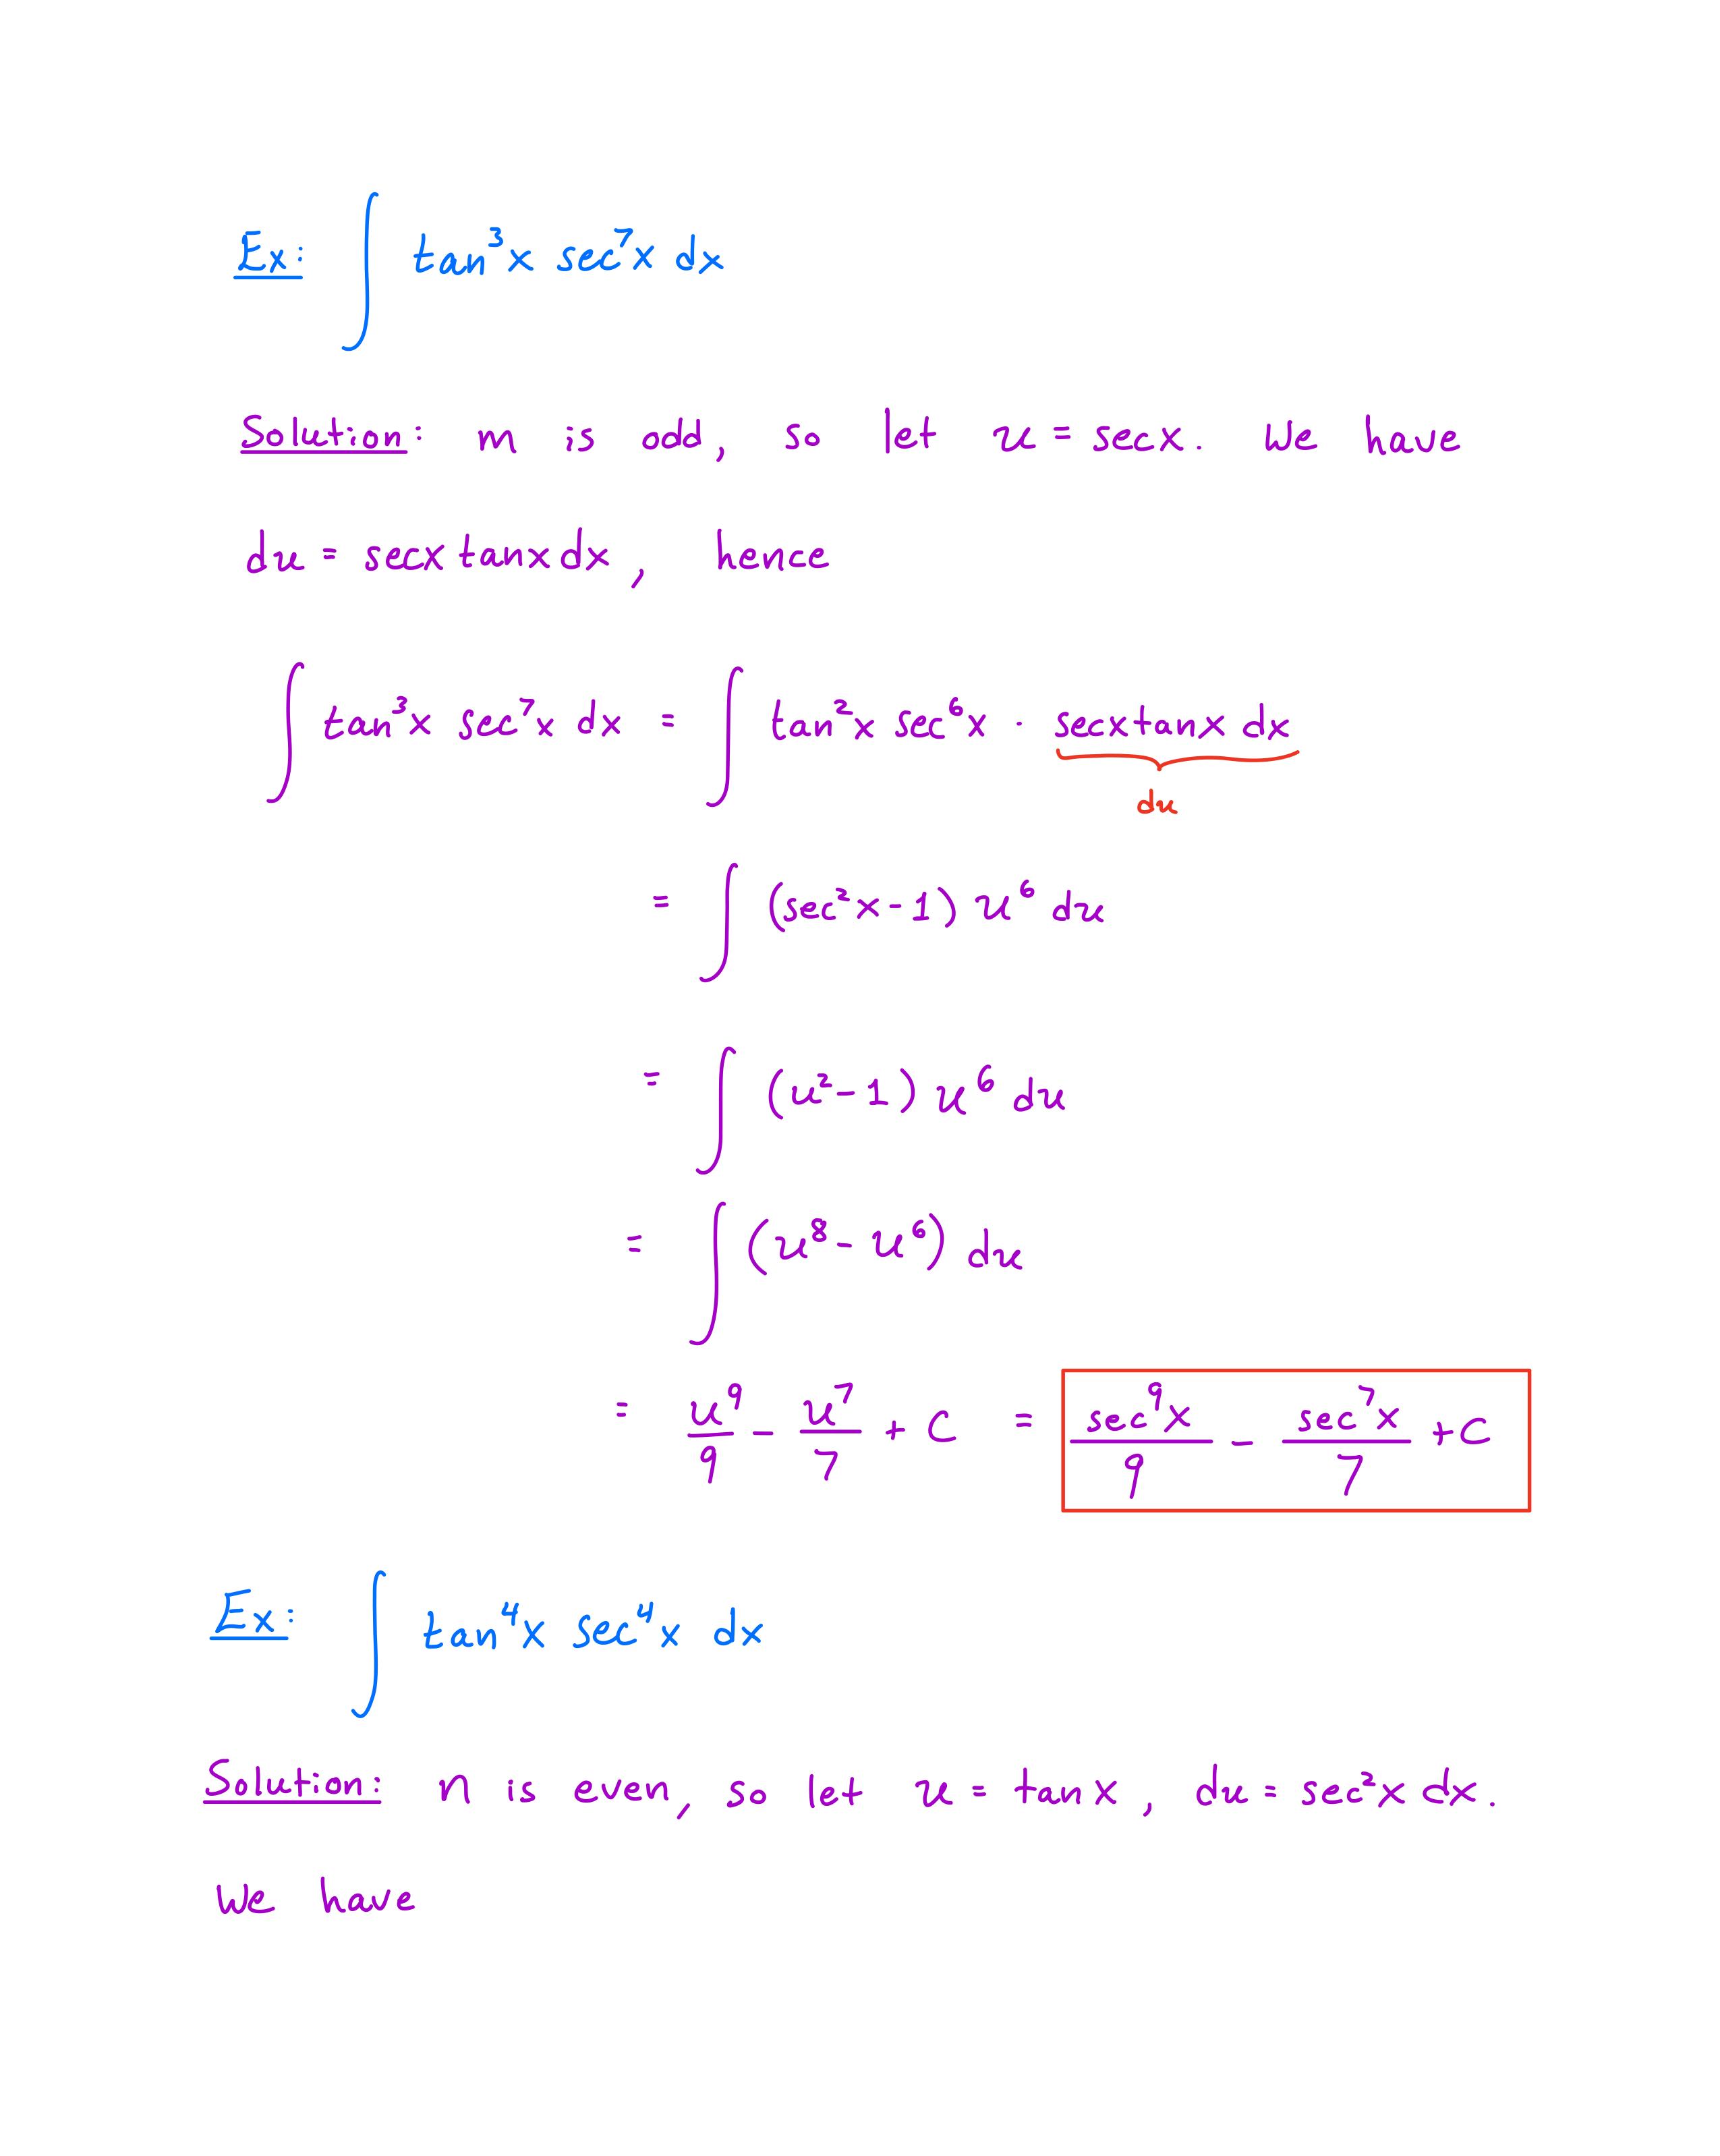 Ex: ∫ tan³x sec⁷x dx
Solution: m is odd, so let u = secx. We have
du = secxtanxdx, hence
∫ tan³x sec⁷x dx = ∫ tan²x sec⁶x · secxtanx dx
du
= ∫ (sec²x-1) u⁶ du
= ∫ (u²-1) u⁶ du
= ∫ (u⁸- u⁶) du
= u⁹/9 - u⁷/7 + C = sec⁹x/9 - sec⁷x/7 +C
Ex: ∫ tan⁴x sec⁴x dx
Solution: n is even, so let u = tanx, du = sec²x dx.
We have